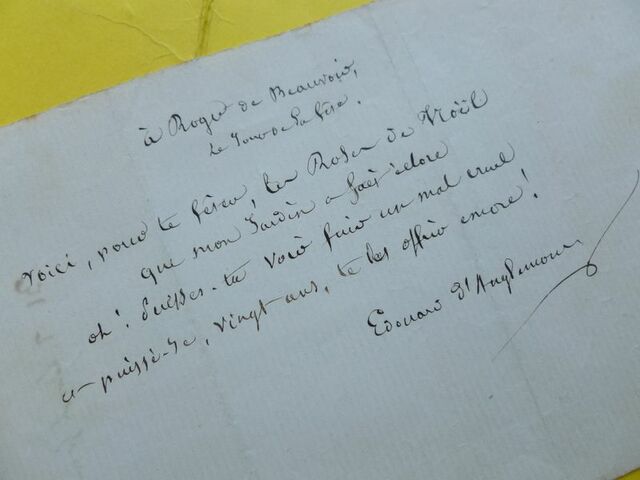 à Roger de Beauvoir,
Le Jour de Sa fête.
Voici, pour ta fête, les Roses de Noël
que mon Jardin a fait éclore
oh! Puisses-tu voir finir un mal cruel
et puissé-je, vingt ans, te les offrir encore!
Edouard d'Anglemont